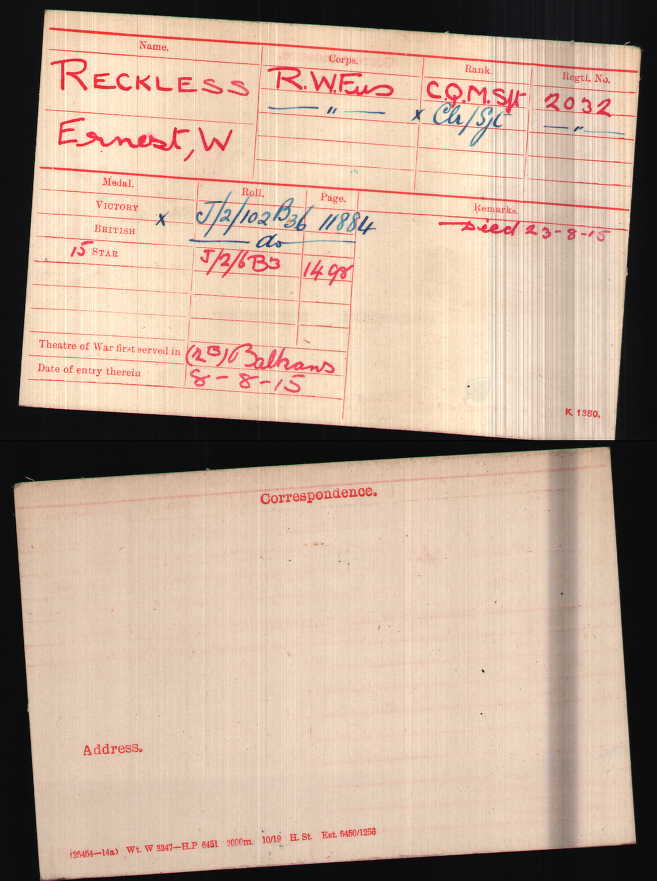 Name. Corps. Rank. Regtl. No.
RECKLESS R.W.Fus C.Q.M.Sjt 2032
— " — x Clr/Sjt — " —
Ernest, W
Medal. Roll. Page. Remarks.
VICTORY x J/2/102B36 11884 Died 23-8-15
BRITISH — do —
15 STAR J/2/6B3 149
Theatre of War first served in (2B) Balkans
Date of entry therein 8-8-15
K 1380.
Correspondence.
Address.
(36464—14a) Wt. W 5247—H.P 6451 2000m. 10/19 H. St. Est. 6450/1256